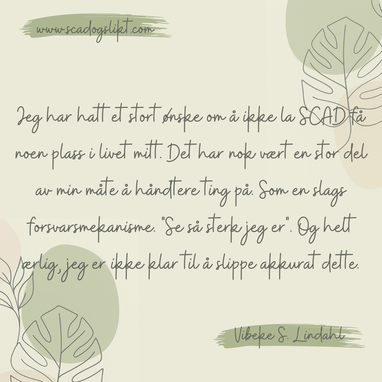 www.scadogslikt.com
Jeg har hatt et stort ønske om å ikke la SCAD få
noen plass i livet mitt. Det har nok vært en stor del
av min måte å håndtere ting på. Som en slags
forsvarsmekanisme. "Se så sterk jeg er". Og helt
ærlig, jeg er ikke klar til å slippe akkurat dette.
Vibeke S. Lindahl